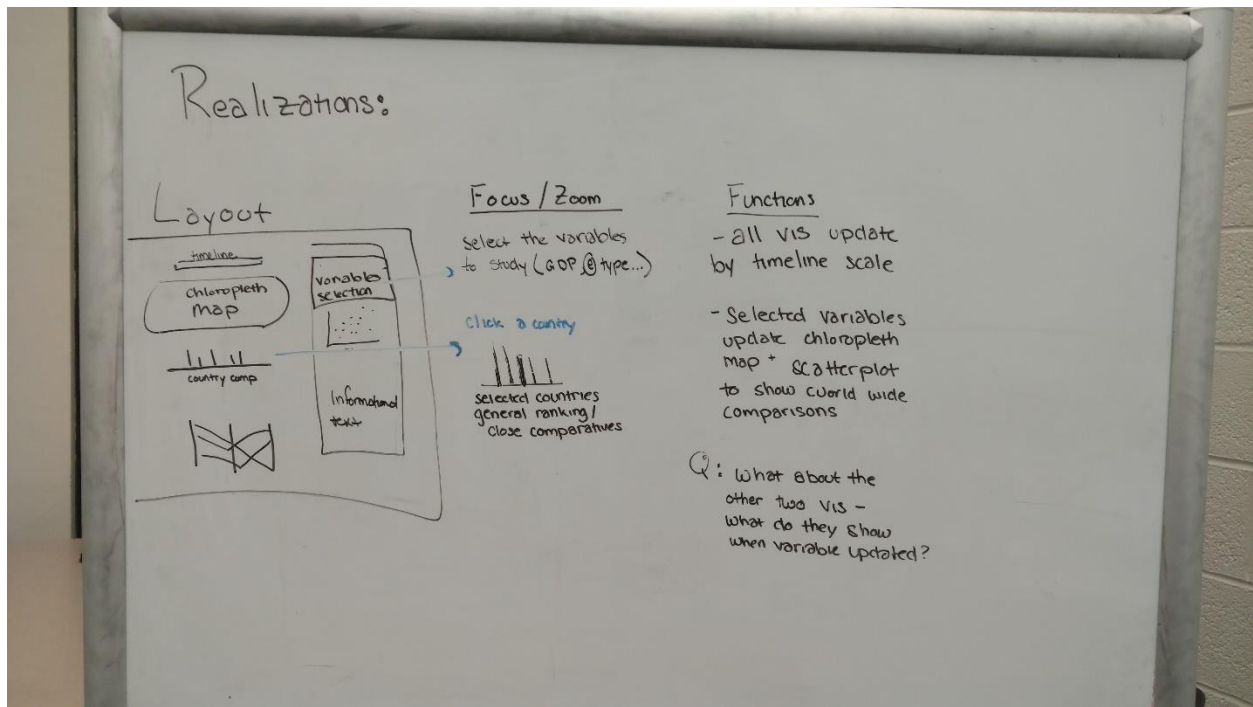 Realizations:
Layout
timeline
chloropleth
map
country comp
variables
selection
Informational
text
Focus / Zoom
Select the variables
to study (GDP, @ type...)
Click a country
selected countries
general ranking /
close comparatives
Functions
- all vis update
by timeline scale
- Selected variables
update chloropleth
map + scatterplot
to show world wide
comparisons
Q: What about the
other two vis -
what do they show
when variable updated?